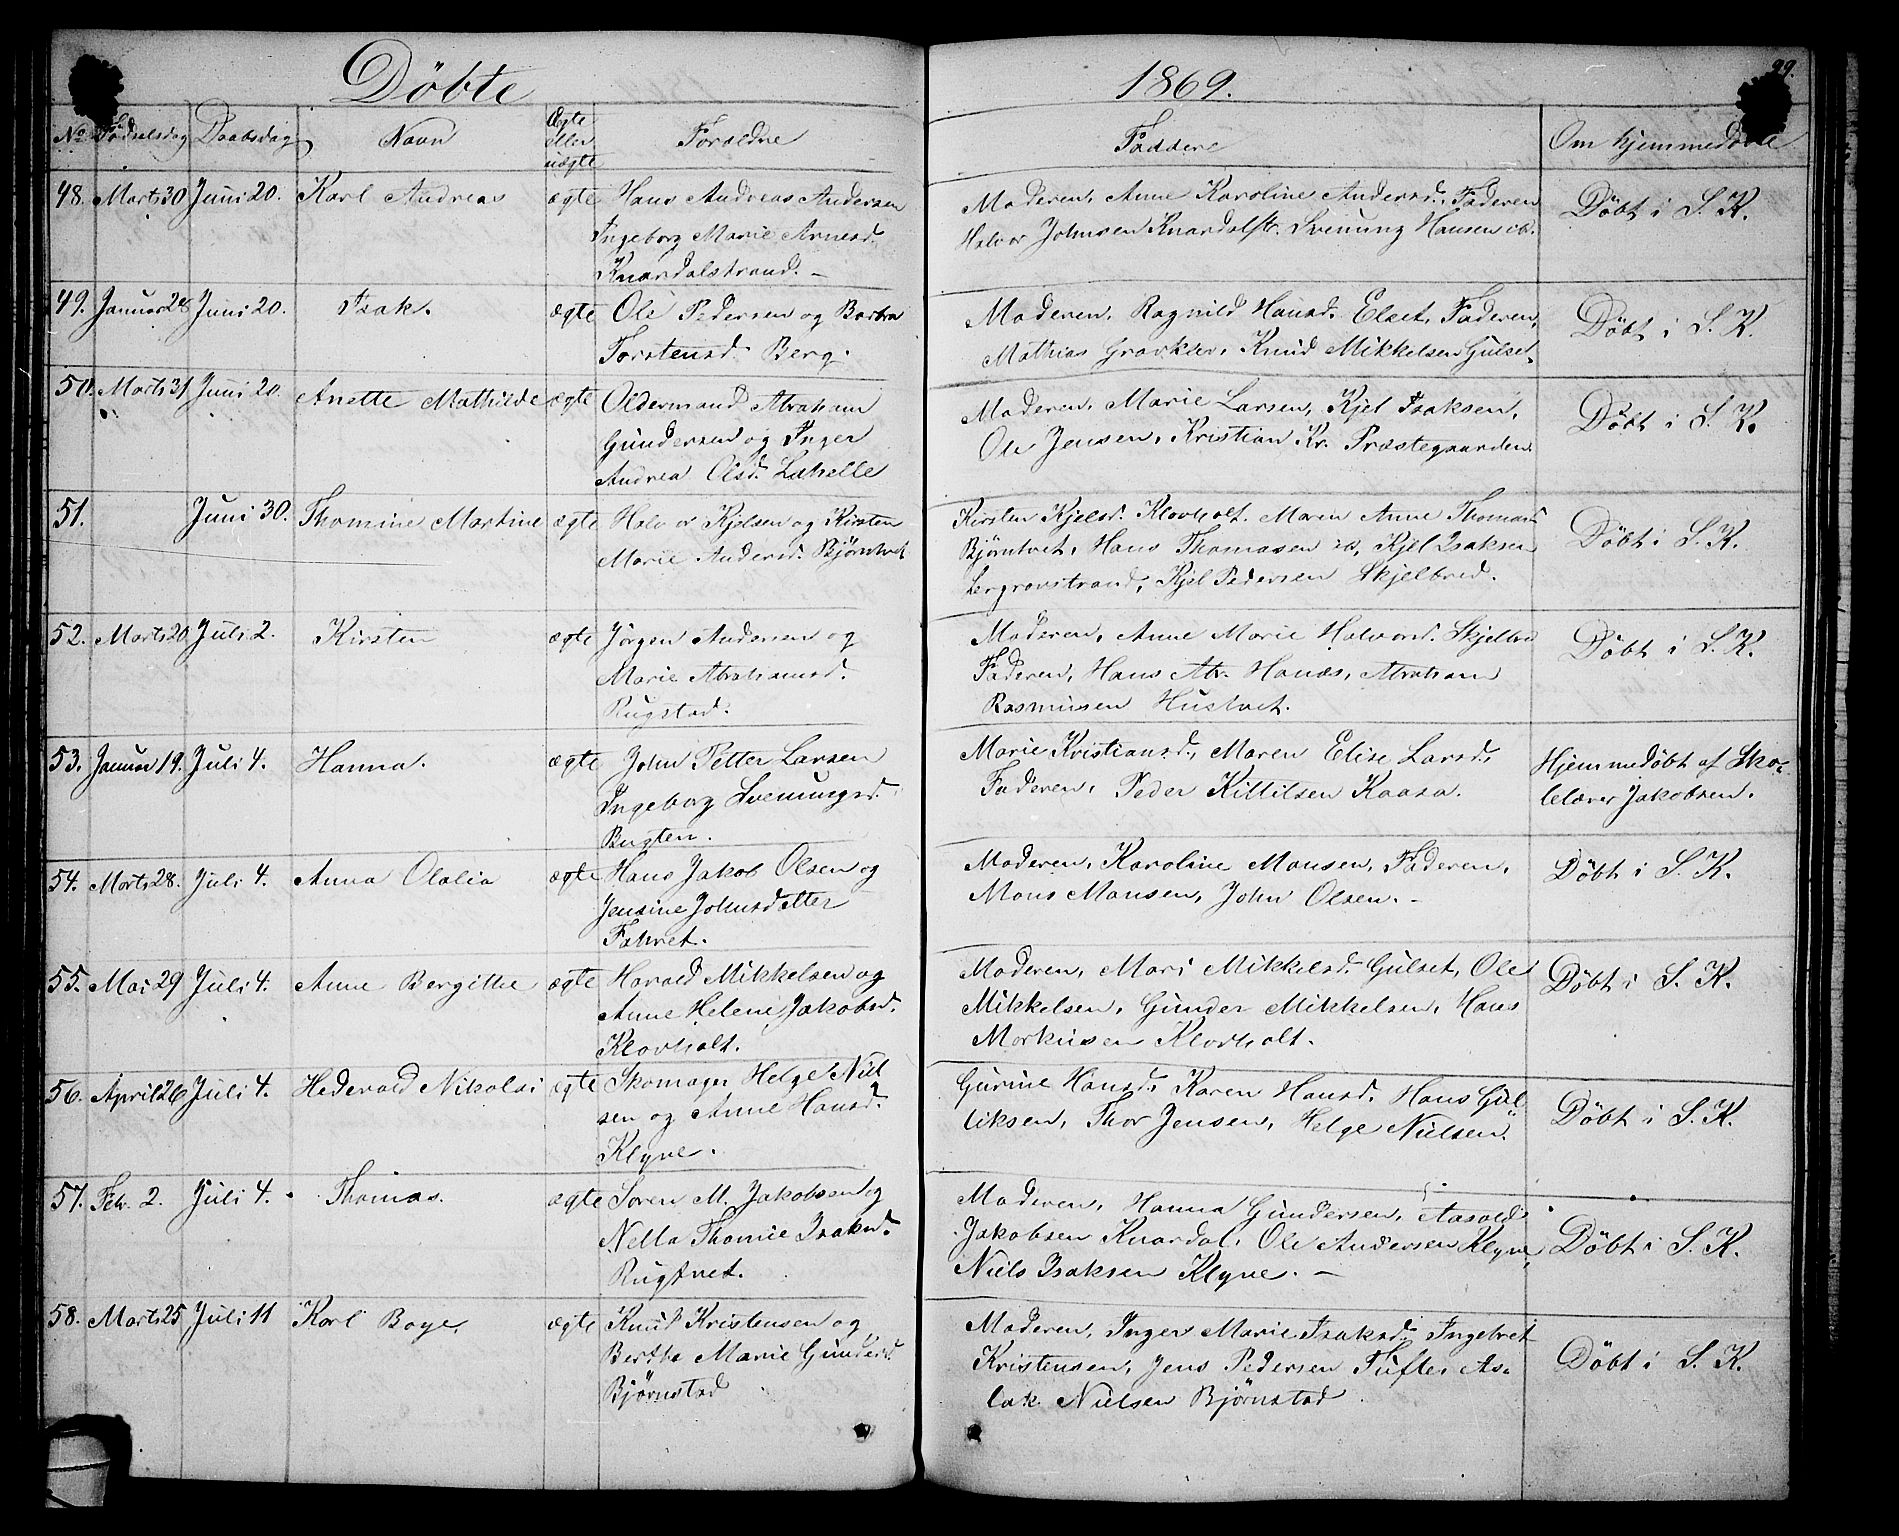 Döbte 1869.
99.
No Fødselsdag Daabsdag Navn Ægte eller uægte Forældre Faddere Om hjemmedöbt
48. Marts 30 Juni 20. Karl Andreas ægte Hans Andreas Andersen
Ingeborg Marie Arnesd.
Knardalstrand. –
Moderen, Anne Karoline Andersd., Faderen
Halvor Johnsen Knardalstr. Svenung Hansen ib.
Döbt i S. K.
49. Januar 28 Juni 20. Isak. ægte Ole Pedersen og Barbra
Torstensd. Berg.
Moderen, Ragnild Hansd. Elset, Faderen,
Mathias Gravklev, Knud Mikkelsen Gulset.
Döbt i S. K.
50. Marts 31 Juni 20. Anette Mathilde ægte Oldermand Abraham
Gundersen og Inger
Andrea Olsd. Lakselle
Moderen, Marie Larsen, Kjel Isaksen,
Ole Jensen, Kristian Kr. Præstegaarden
Döbt i S. K.
51. Juni 30. Thomine Martine ægte Halvor Kjelsen og Kirsten
Marie Andersd. Bjørntvet
Kirsten Kjelsd. Klovholt. Maren Anne Thomasd
Bjørntvet, Hans Thomasen ib, Kjel Isaksen
Lergravstrand, Kjel Pedersen Skjelbred.
Döbt i S. K.
52. Marts 20 Juli 2. Kirsten ægte Jörgen Andersen og
Marie Abrahamsd.
Rugstad.
Moderen, Anne Marie Halvorsd. Skjelbre
Faderen, Hans Abr. Hanæs, Abraham
Rasmusen Hustvet.
Döbt i S. K.
53. Januar 19. Juli 4. Hanna. ægte John Petter Larsen
Ingeborg Svenungsd.
Bugten.
Marie Kristiansd., Maren Elise Larsd,
Faderen, Peder Kittilsen Kaasa.
Hjemmedöbt af Sko-
lelærer Jakobsen.
54. Marts 28. Juli 4. Anna Olalia ægte Hans Jakob Olsen og
Jensine Johnsdatter
Fahvet.
Moderen, Karoline Monsen, Faderen,
Mons Monsen, John Olsen. –
Döbt i S. K.
55. Mai 29 Juli 4. Anne Bergithe ægte Harald Mikkelsen og
Anne Helene Jakobsd.
Klovholt.
Moderen, Mari Mikkelsd. Gulset, Ole
Mikkelsen, Gunder Mikkelsen, Hans
Markusen Klovholt.
Döbt i S. K.
56. April 26 Juli 4. Hedevald Nikolai ægte Skomager Helge Niel-
sen og Anne Hansd.
Klyve.
Gurine Hansd. Karen Hansd. Hans Gul-
liksen, Thor Jensen, Helge Nielsen.
Döbt i S. K.
57. Febr. 2. Juli 4. Thomas. ægte Søren M. Jakobsen og
Nella Thomie Isaksd.
Rugtvet.
Moderen, Hanna Gundersen, Aasold
Jakobsen Knardal, Ole Andersen Klyve,
Niels Isaksen Klyve. –
Döbt i S. K.
58. Marts 25 Juli 11 Karl Boye. ægte Knut Kristensen og
Berthe Marie Gundersd.
Bjørnstad
Moderen, Inger Marie Isaksd. Ingebret
Kristensen, Jens Pedersen Tufte, As-
lak Nielsen Bjørnstad.
Döbt i S. K.